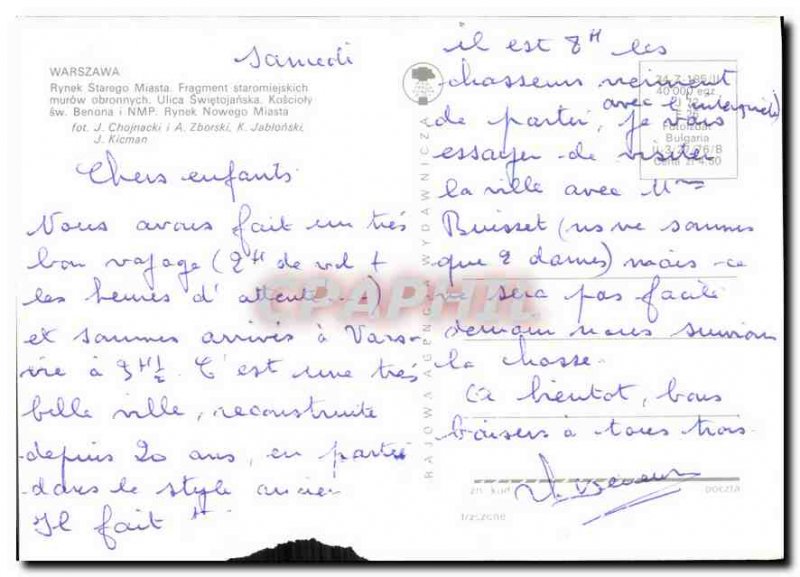 Samedi
WARSZAWA
Rynek Starego Miasta. Fragment staromiejskich
murów obronnych. Ulica Świętojańska. Kościoły
św. Benona i NMP. Rynek Nowego Miasta
fot. J. Chojnacki i A. Zborski, K. Jabłoński,
J. Kicman
Chers enfants
Nous avons fait un très
bon voyage (2H de vol +
les heures d'attente...)
et sommes arrivés à Varso
vie à 3H½. C'est une très
belle ville, reconstruite
depuis 20 ans, en partie
dans le style ancien
Il fait
KRAJOWA AGENCJA WYDAWNICZA
il est 8H les
chasseurs viennent
de partir, avec l'interprète) je vais
essayer de visiter
la ville avec Mme
Buisset (ns ne sommes
que 2 dames) mais ce
ne sera pas facile
demain nous suivrons
la chasse.
A bientôt, bons
baisers à tous trois
40 000 egz
Bulgaria
Cena zł 4.50
zn. kod
poczta
CPAPHIL